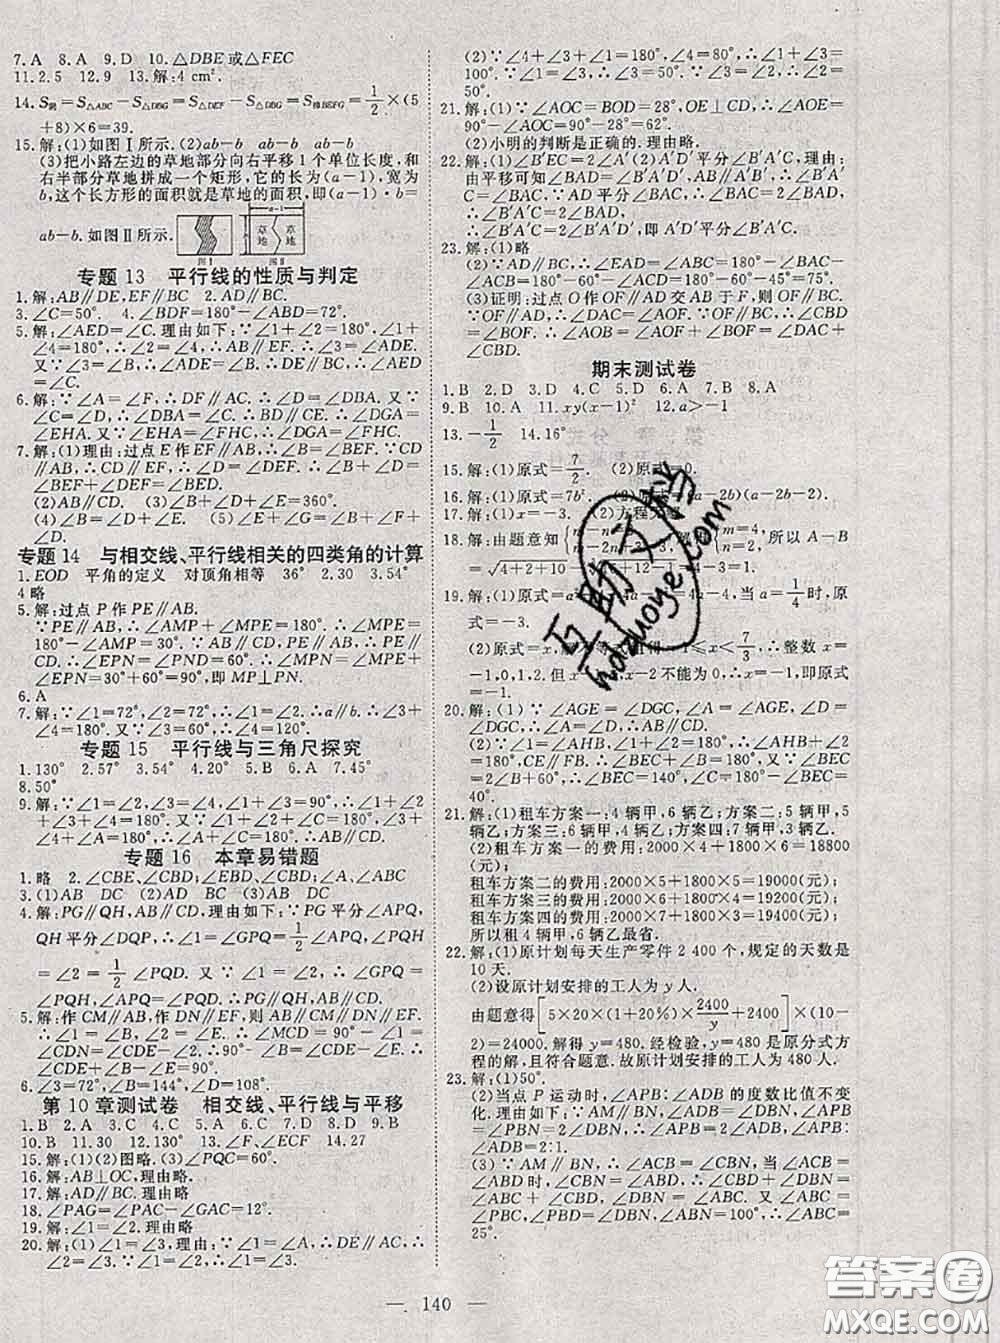 7. A  8. A  9. D  10. △DBE或△FEC
11. 2.5  12. 9  13. 解:4 cm².
14. S阴=S△ABC-S△DEF=S△DEF=S梯BEFG=1/2×(5
+8)×6=39.
15. 解:(1)如图Ⅰ所示. (2)ab-b  ab-b
(3)把小路左边的草地部分向右平移1个单位长度,和
右半部分草地拼成一个矩形,它的长为(a-1),宽为
b,这个长方形的面积就是草地的面积,即(a-1)·b=
ab-b. 如图Ⅱ所示.
a-1
草地 草地
图Ⅰ 图Ⅱ
专题 13  平行线的性质与判定
1. 解:AB∥DE,EF∥BC  2. AD∥BC.
3. ∠C=50°.  4. ∠BDF=180°-∠BDE=72°.
5. 解:∠AED=∠C. 理由如下:∵∠1+∠2=180°,∠1+
∠4=180°,∴∠2=∠4,∴AB∥EF,∴∠3=∠ADE.
又∵∠3=∠B,∴∠ADE=∠B,∴DE∥BC,∴∠AED
=∠C.
6. 解:∵∠A=∠F,∴DF∥AC. ∴∠C=∠DBA. 又∵∠C
=∠D,∴∠DBA=∠D,∴DB∥CE,∴∠DGA=
∠EHA. 又∵∠DGA=∠FHC. ∴∠DGA=∠FHC.
7. 解:(1)理由:过点E作EF∥AB,∴∠B=∠BEF. ∵CD
∥AB,∴CD∥EF,∴∠D=∠DEF,∴∠B+∠D=
∠BEF+∠DEF=∠BED.
(2)AB∥CD  (3)∠B+∠D+∠E=360°.
(4)∠B=∠D+∠E  (5)∠E+∠G=∠B+∠F+∠D
专题 14  与相交线、平行线相关的四类角的计算
1. EOD  平角的定义  对顶角相等  36°  2. 30  3. 54°
4 略
5. 解:过点P作PE∥AB.
∵PE∥AB,∴∠AMP+∠MPE=180°. ∴∠MPE=
180°-∠AMP=30°. ∵AB∥CD,PE∥AB,∴PE∥
CD. ∴∠EPN=∠PND=60°. ∴∠MPN=∠MPE+
∠EPN=30°+60°=90°,即MP⊥PN.
6. A
7. 解:∵∠1=72°,∠2=72°,∴∠1=∠2,∴a∥b,∴∠3+
∠4=180°. 又∵∠3=60°,∴∠4=120°.
专题 15  平行线与三角尺探究
1. 130°  2. 57°  3. 54°  4. 20°  5. B  6. A  7. 45°
8. 50°
9. 解:∵∠1=∠2,∠3=∠4,∠1+∠3=90°,∴∠1+∠2
+∠3+∠4=180°,∵∠1+∠2+∠5=180°,∠3+∠4+
∠6=180°,∴∠5+∠6=180°,∴AB∥CD.
专题 16  本章易错题
1. 略  2. ∠CBE、∠CBD;∠EBD、∠CBD;∠A、∠ABC
3. (1)AB DC  (2)AD BC  (3)AB DC
4. 解:PG∥QH,AB∥CD,理由如下:∵PG平分∠APQ,
QH平分∠DQP,∴∠1=∠GPQ=1/2∠APQ,∠PQH
=∠2=1/2∠PQD. 又∵∠1=∠2,∴∠GPQ=
∠PQH,∠APQ=∠PQD. ∴PG∥QH,AB∥CD.
5. 解:作CM∥AB,作DN∥EF,则AB∥CM∥DN∥EF.
∴∠1=∠B,∠2=∠E. ∴∠MCD=90°-∠1=
∠CDN=∠CDE-∠2,∴90°-∠B=∠CDE-∠E,
∴∠B+∠CDE-∠E=90°.
6. ∠3=72°  7. ∠2=145°
第10章测试卷  相交线、平行线与平移
1. B  2. A  3. C  4. C  5. A  6. C  7. D  8. D  9. D
10. B  11. 30  12. 130°  13. ∠F、∠ECF  14. 27
15. 解:(1)(2)图略. (3)∠PQC=60°.
16. 解:AB⊥OC,理由略.
17. 解:AD∥BC. 理由略
18. ∠PAG=∠PAC-∠GAC=12°.
19. 解:∠1=∠2. 理由略
20. 解:(1)∠1=∠3,理由:∵∠1=∠A,∴DE∥AC,∴
∠2=∠3. ∵∠1=∠2,∴∠1=∠3.
(2)∵∠4+∠3+∠1=180°,∠4=80°,∴∠3+∠1=
100°. ∵∠1=∠2=∠3,∴∠1=50°,∵∠A=∠1=
50°.
21. 解:(1)∵∠AOC=BOD=28°,OE⊥CD,∴∠AOE=
90°-∠AOC=90°-28°=62°.
(2)小明的判断是正确的. 理由略
22. 解:(1)∠B′EC=2∠A′ (2)A′D′平分∠B′A′C. 理由:
由平移可知∠BAD=∠B′A′D′,AB∥A′B′,∴∠B′A′C
=∠BAC. ∵AD平分∠BAC,∴∠BAC=2∠BAD,
∴∠B′A′C=2∠BAD,
∴∠B′A′C=2∠B′A′D′,即A′D′平分∠B′A′C.
23. 解:(1)略
(2)∵OB∥AC,∴∠B+∠BAC=180°,∵∠B=60°,
∴∠BAC=180°-∠B=120°.
(3)证明:过点O作OF∥AD交AB于F,则OF∥BC.
∵OF∥AD,∴∠AOF=∠OAD. ∵OF∥BC,∴∠BOF
=∠OBC. ∴∠AOB=∠AOF+∠BOF=∠DAC+
∠CBD.
期末测试卷
1. B  2. D  3. D  4. C  5. D  6. A  7. B  8. A
9. B  10. A  11. xy(x-1)²  12. a>-1
13. -1/2  14. 16°
15. 解:(1)原式=7/2. (2)原式=0.
16. 解:(1)原式=7b². (2)原式=(a-2b)(a-2b-2)
17. 解:(1)x=-3. (2)方程无
18. 解:由题意知 所以A-B
=√
19. 解:(1)原式= 4a-4,当a=1/4时,原
式=-3.
(2)原式=x, ≤x≤7/3,∴整数x=
-1,0,1,2. 因x不能为0、1、2,故x=-1,即原式=-1.
20. 解:(1)∵∠AGE=∠DGC,∠AGE=∠A,∠D=
∠DGC,∴∠A=∠D,∴AB∥CD.
(2)∵∠1+∠2=180°,∠AHB=∠1,∴∠AHB+∠2
=180°,CE∥FB. ∴∠B+∠BEC=180°. ∵∠BEC=
2∠B+60°,∴∠BEC=140°,∠C=180°-∠BEC=
40°.
21. 解:(1)租车方案一:4辆甲,6辆乙;方案二:5辆甲,5
辆乙;方案三:6辆甲,4辆乙;方案四:7辆甲,3辆乙.
(2)租车方案一的费用:2000×4+1800×6=18800
(元);
租车方案二的费用:2000×5+1800×5=19000(元);
租车方案三的费用:2000×6+1800×4=19200(元);
租车方案四的费用:2000×7+1800×3=19400(元);
所以租4辆甲,6辆乙最省.
22. 解:(1)原计划每天生产零件2 400个,规定的天数是
10天.
(2)设原计划安排的工人为y人.
由题意得[5×20×(1+20%)×2400/y+2400]×(10-
2)=24000. 解得y=480. 经检验,y=480是原分式方
程的解,且符合题意. 故原计划安排的工人为480人.
23. 解:(1)50°.
(2)当点P运动时,∠APB:∠ADB的度数比值不变
化. 理由如下:∵AM∥BN,∴∠APB=∠PBN,
∠ADB=∠DBN. ∵BD平分∠PBN,∴
∠PBN=2∠DBN=2∠ADB,∴∠APB=2∠ADB,即∠APB:
∠ADB=2:1.
(3)∵AM∥BN,∴∠ACB=∠CBN,当∠ACB=
∠ABD时,∠CBN=∠ABD,∴∠CBN=∠ABC
+∠CBD,∠CBN=∠CBD+∠DBN,∴
∠ABC=∠DBN. 又∵∠ABC=
∠PBC,∠PBD=∠DBN,∠ABN=100°,∴∠ABC=
25°.
— 140 —
互助文档
hdzuoye.com
答案圈
MXQE.COM